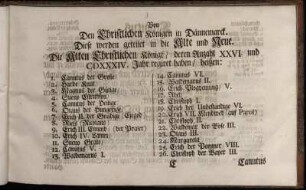 Von
Den Christlichen Königen in Dännemarck.
Diese werden geteilet in die Alte und Neue.
Die Alten Christlichen Könige / deren Anzahl XXVI und
CDXXXIV. Jahr regiert haben / heissen:
1. Canutus der Große.
2. Harde Knut.
3. Magnus der Gütige.
4. Sueno Esthritius.
5.
6. Canutus der Heilige
7. Olaus der Hungerige.
8. Erich II. der
9. Erich III.
10. Erich IV. Lamm.
11. Sueno
12. Canutus V.
13. Waldemarus I.
14. Canutus VI.
15. Waldemarus II.
16. Erich Plogpenning / V.
17. Abel.
18. Christoph I.
19. Erich der
20. Erich VII.
21. Christoph II.
22. Waldemar der Böse III.
23. Olaus III.
24. Margareta.
25. Erich der Pommer VIII.
26. Christoph der Bayer III.
C
Canutus